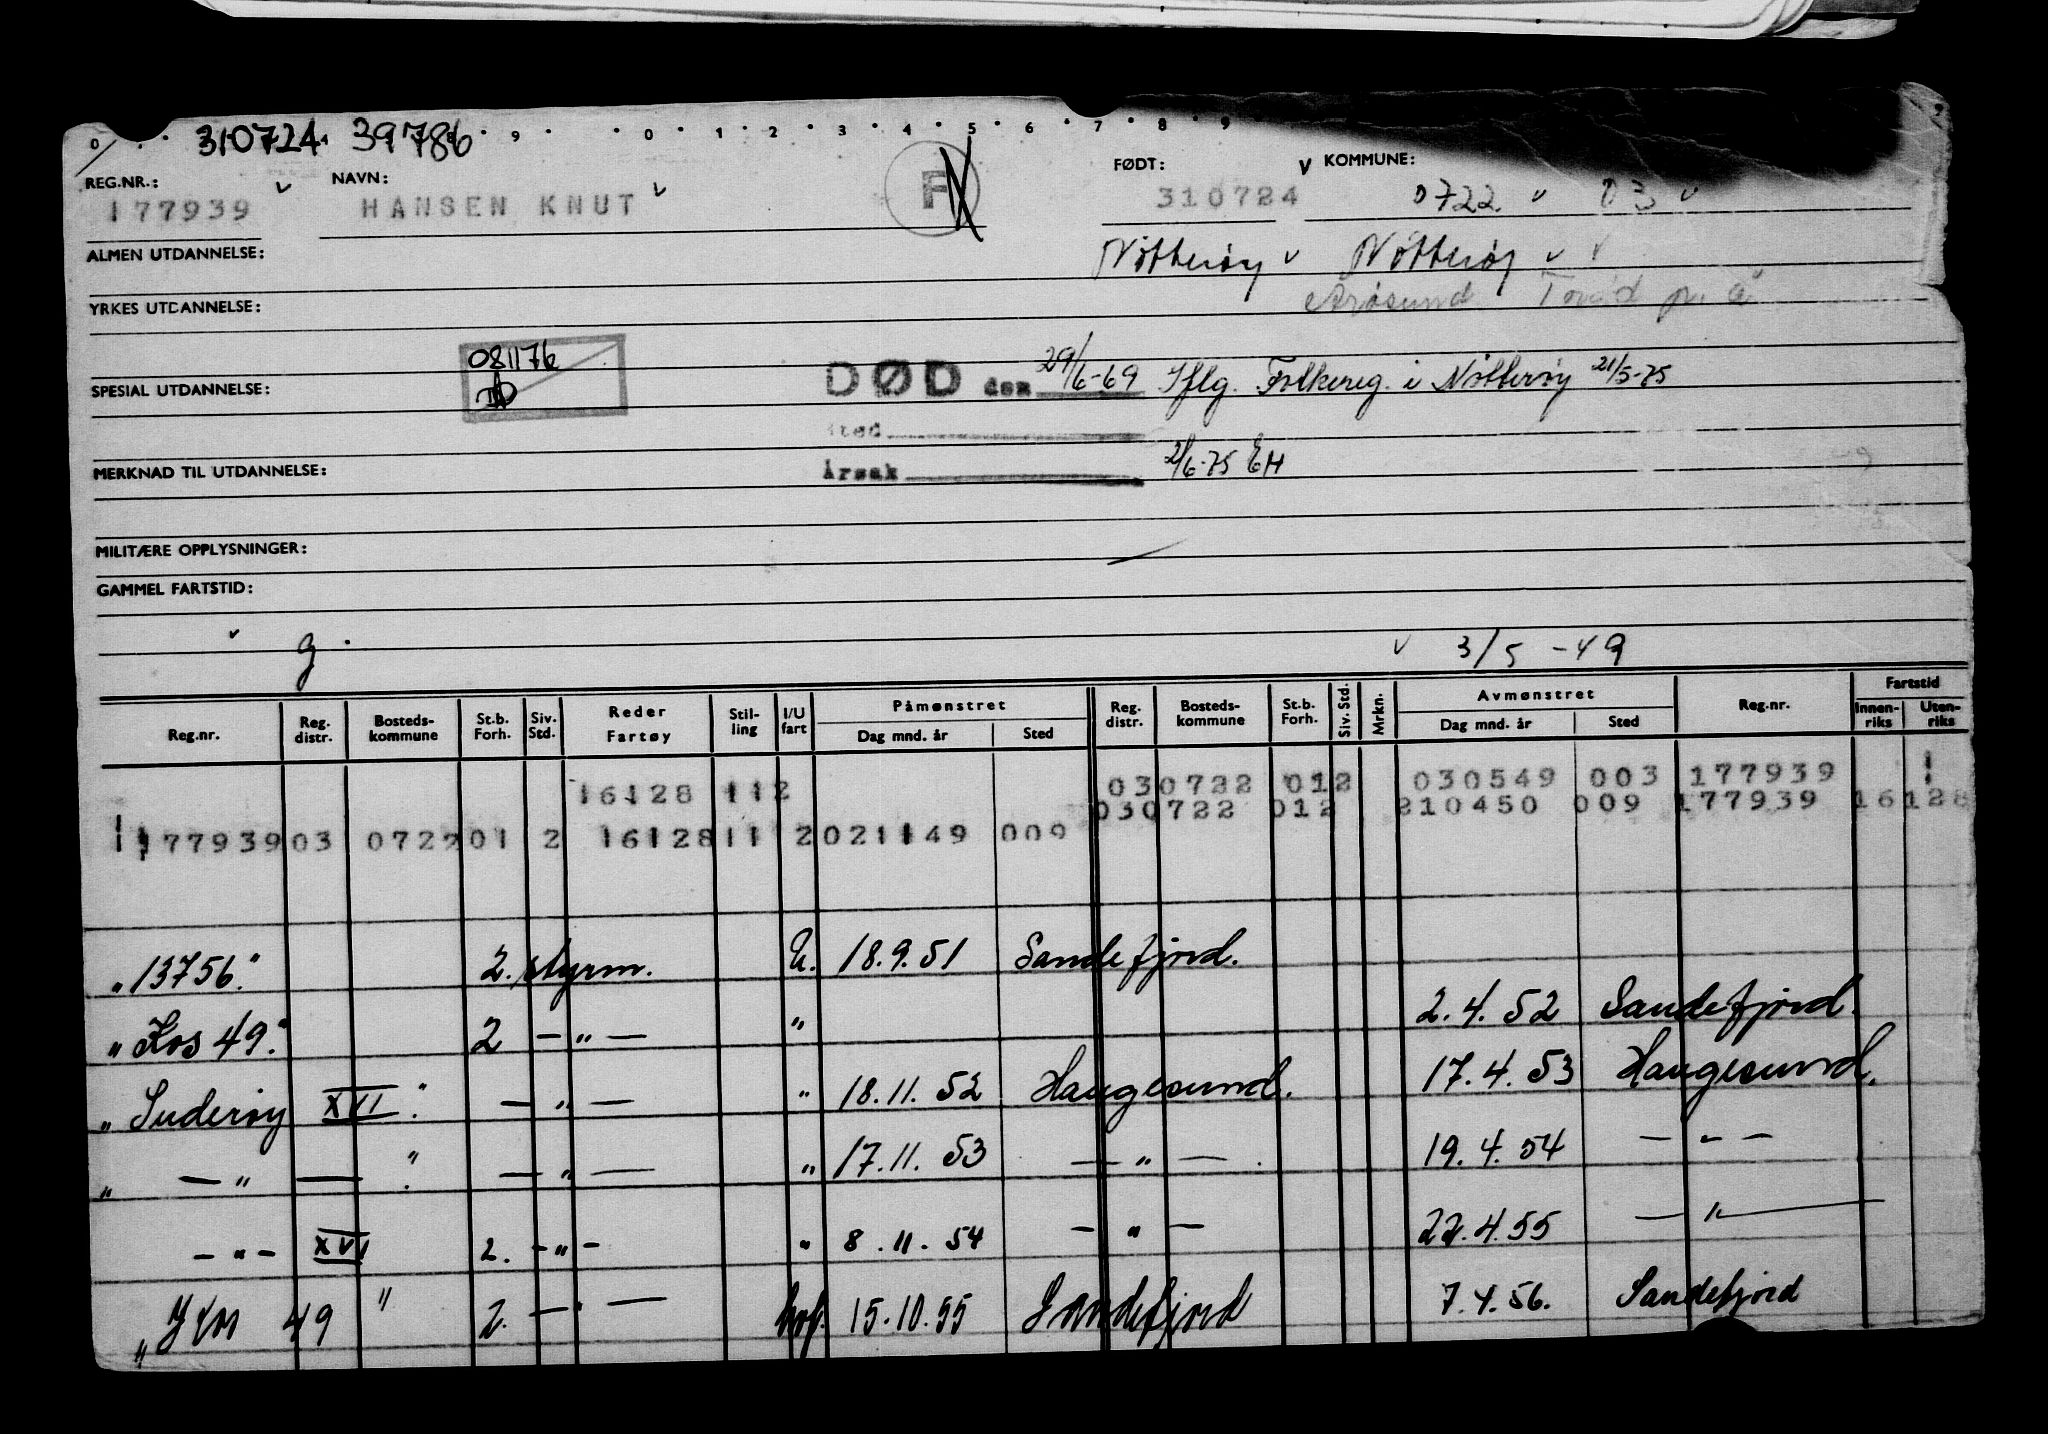 310724. 39786 9 0 1 2 3 4 5 6 7 8 9
REG.NR.: NAVN: FØDT: KOMMUNE:
177939 HANSEN KNUT F 310724 0722 03
ALMEN UTDANNELSE: Nøtterøy Nøtterøy
YRKES UTDANNELSE: Årøsund
081176
SPESIAL UTDANNELSE: DØD den 29/6-69 Iflg. Folkereg. i Nøtterøy 21/5-75
Sted
MERKNAD TIL UTDANNELSE: Årsak 2/6-75 EH
MILITÆRE OPPLYSNINGER:
GAMMEL FARTSTID:
g. 3/5-49
Reg.nr. Reg. distr. Bosteds-kommune St.b. Forh. Siv. Std. Reder Fartøy Stil-ling I/U fart Påmønstret Dag mnd. år Sted Reg. distr. Bosteds-kommune St.b. Forh. Siv. Std. Mrkn. Avmønstret Dag mnd. år Sted Reg.nr. Fartstid Innen-riks Uten-riks
16128 112 030722 012 030549 003 177939
030722 012 210450 009 177939 16128
177939 03 0722 01 2 16128 11 2 021149 009
"13756." 2. styrm. U. 18.9.51 Sandefjord.
"Kos 49." 2 — " — " 2.4.52 Sandefjord.
"Suderøy XVI." — " — " 18.11.52 Haugesund. 17.4.53 Haugesund.
" — " — " — " — " 17.11.53 — " — . 19.4.54 — " —
— " — XVI 2. — " — " 8.11.54 — " — 22.4.55 — " —
"Kos 49" 2. — " — hvf. 15.10.55 Sandefjord 7.4.56. Sandefjord